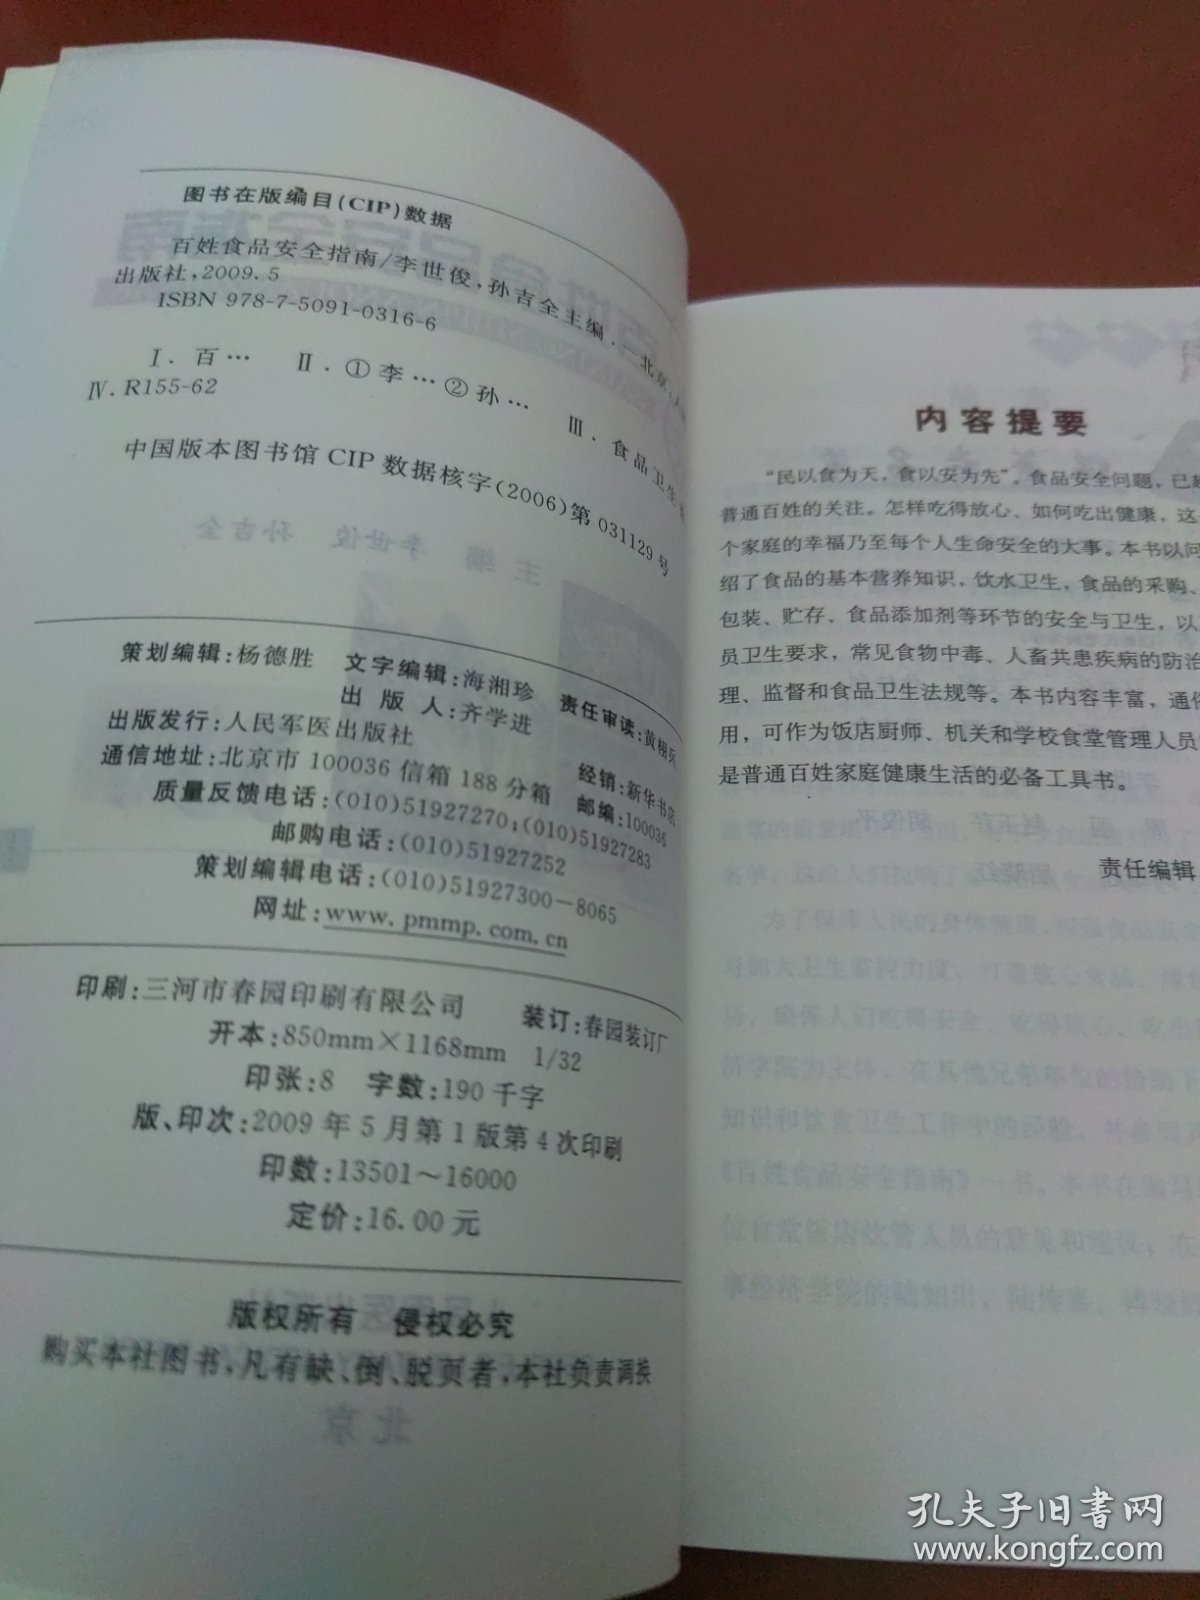 图书在版编目(CIP)数据
百姓食品安全指南/李世俊,孙吉全主编.—北京:人
出版社,2009.5
ISBN 978-7-5091-0316-6
Ⅰ.百… Ⅱ.①李…②孙… Ⅲ.食品卫生
Ⅳ.R155-62
中国版本图书馆CIP数据核字(2006)第031129号
策划编辑:杨德胜 文字编辑:海湘珍 责任审读:黄栩兵
出 版 人:齐学进
出版发行:人民军医出版社 经销:新华书店
通信地址:北京市100036信箱188分箱 邮编:100036
质量反馈电话:(010)51927270;(010)51927283
邮购电话:(010)51927252
策划编辑电话:(010)51927300-8065
网址:www.pmmp.com.cn
印刷:三河市春园印刷有限公司 装订:春园装订厂
开本:850mm×1168mm 1/32
印张:8 字数:190千字
版、印次:2009年5月第1版第4次印刷
印数:13501~16000
定价:16.00元
版权所有 侵权必究
购买本社图书,凡有缺、倒、脱页者,本社负责调换
内容提要
“民以食为天,食以安为先”。食品安全问题,已
普通百姓的关注。怎样吃得放心、如何吃出健康,这
个家庭的幸福乃至每个人生命安全的大事。本书以问
绍了食品的基本营养知识,饮水卫生,食品的采购、
包装、贮存、食品添加剂等环节的安全与卫生,以
员卫生要求,常见食物中毒、人畜共患疾病的防治
理、监督和食品卫生法规等。本书内容丰富,通俗
用,可作为饭店厨师、机关和学校食堂管理人员
是普通百姓家庭健康生活的必备工具书。
责任编辑
孔夫子旧书网
www.kongfz.com